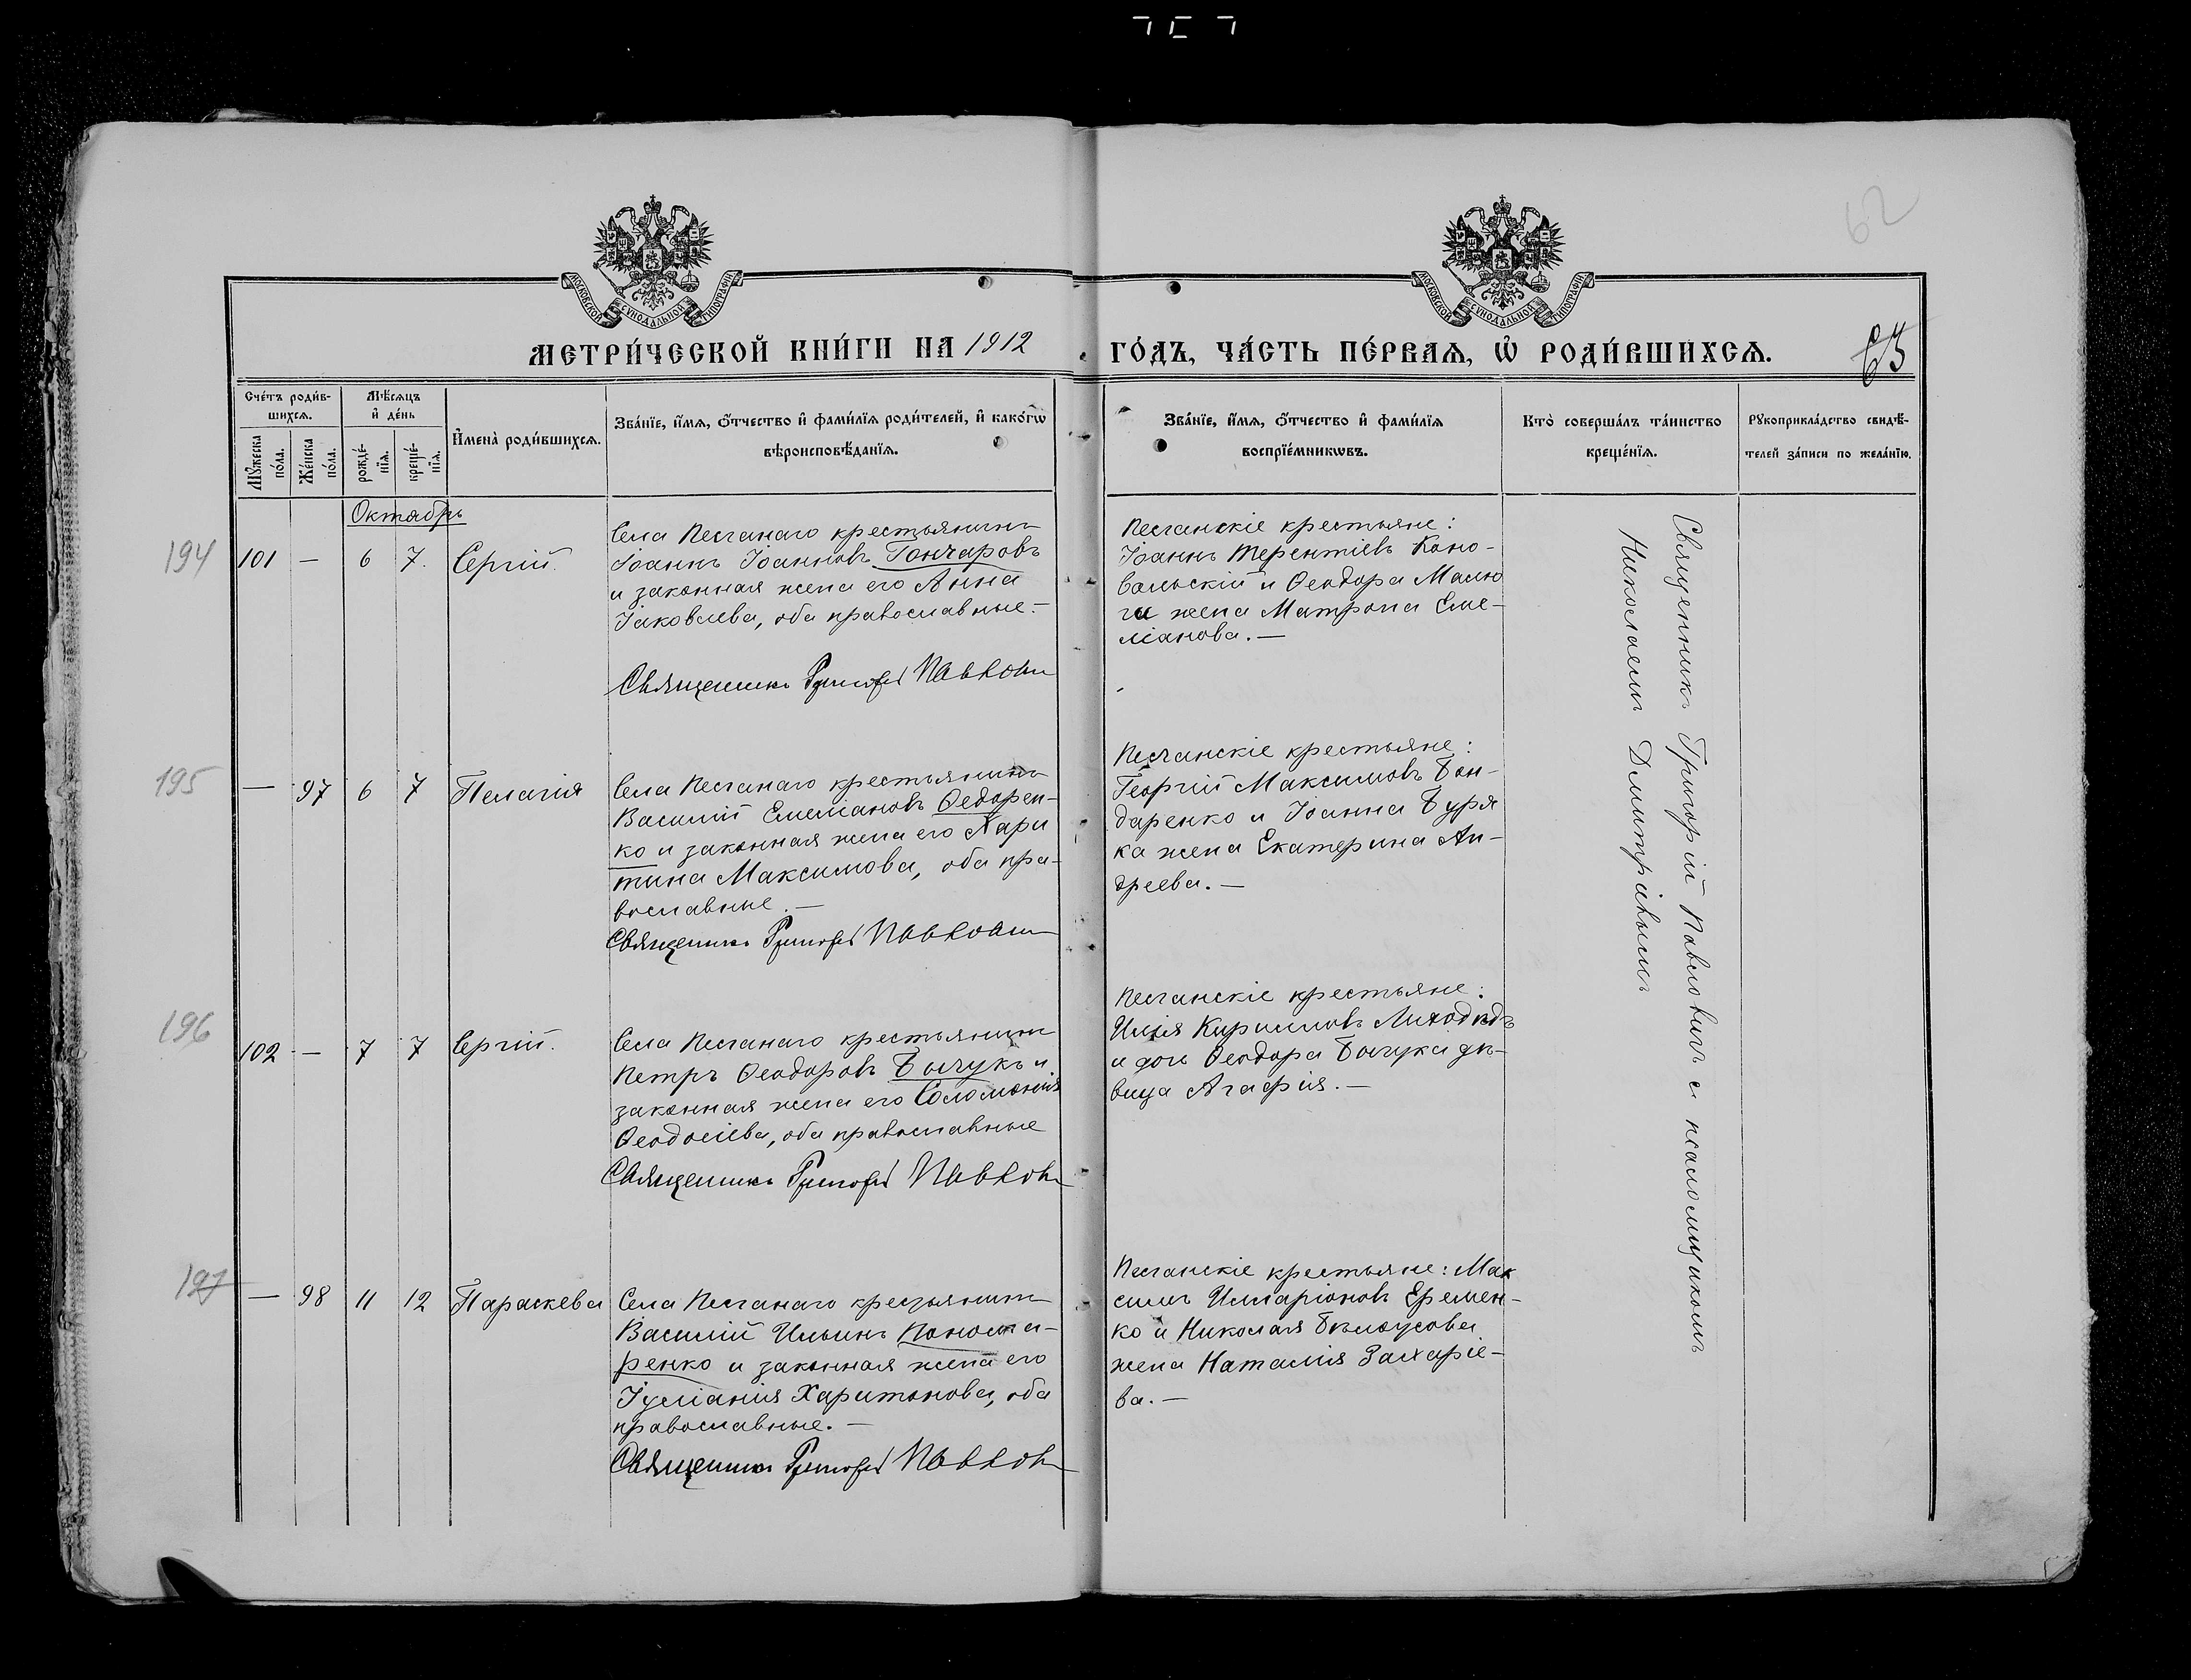 62
63
МОСКОВСКОЙ СѴНОДАЛЬНОЙ ТИПОГРАФІИ
МОСКОВСКОЙ СѴНОДАЛЬНОЙ ТИПОГРАФІИ
МЕТРИ́ЧЕСКОЙ КНИ́ГИ НА 1912 ГО́ДЪ, ЧА́СТЬ ПЕ́РВАѦ, Ѡ҆ РОДИ́ВШИХСѦ.
Сче́тъ роди́в-
шихсѧ.
Мꙋ́жеска по́ла.
Же́нска по́ла.
Мѣ́сѧцъ
и҆ де́нь
рожде́-
нїѧ.
креще́-
нїѧ.
И҆мена̀ роди́вшихсѧ.
Зва́нїе, и҆́мѧ, ѻ҆́тчество и҆ фами́лїѧ роди́телей, и҆ како́гѡ
вѣроисповѣ́данїѧ.
Зва́нїе, и҆́мѧ, ѻ҆́тчество и҆ фами́лїѧ
воспрїе́мникѡвъ.
Кто̀ соверша́лъ та́инство
креще́нїѧ.
Рꙋкоприкла́дство свидѣ́-
телей за́писи по жела́нїю.
Октябрь
194
101 — 6 7. Сергій.
Села Песчанаго крестьянинъ
Іоаннъ Іоанновъ Гончаровъ
и законная жена его Анна
Іаковлева, оба православные.—
Священникъ Григорій Павлович
Песчанскіе крестьяне:
Іоаннъ Терентіевъ Коно-
вальскій и Ѳеодора Малю
ги жена Матрона Еме-
ліанова.—
195
— 97 6 7 Пелагія
Села Песчанаго крестьянинъ
Василій Емеліановъ Ѳедорен-
ко и законная жена его Хари
тина Максимова, оба пра-
вославные.—
Священникъ Григорій Павлович
Песчанскіе крестьяне:
Георгій Максимовъ Бон-
даренко и Іоанна Буря
ка жена Екатерина Ан-
дреева.—
196
102 — 7 7 Сергій.
Села Песчанаго крестьянинъ
Петръ Ѳеодоровъ Бычукъ и
законная жена его Соломонія
Ѳеодосіева, оба православные
Священникъ Григорій Павлович
Песчанскіе крестьяне:
Илія Кирилловъ Лиходѣдъ
и дочь Ѳеодора Бычука дѣ-
вица Агафія.—
197
— 98 11 12 Параскева
Села Песчанаго крестьянинъ
Василій Ильинъ Понома-
ренко и законная жена его
Іуліанія Харитонова, оба
православные.—
Священникъ Григорій Павлович
Песчанскіе крестьяне: Мак
симъ Илларіоновъ Еремен-
ко и Николая Бѣлоусова
жена Наталія Захаріе-
ва.—
Священникъ Григорій Павловичъ съ псаломщикомъ
Николаемъ Димитріевымъ